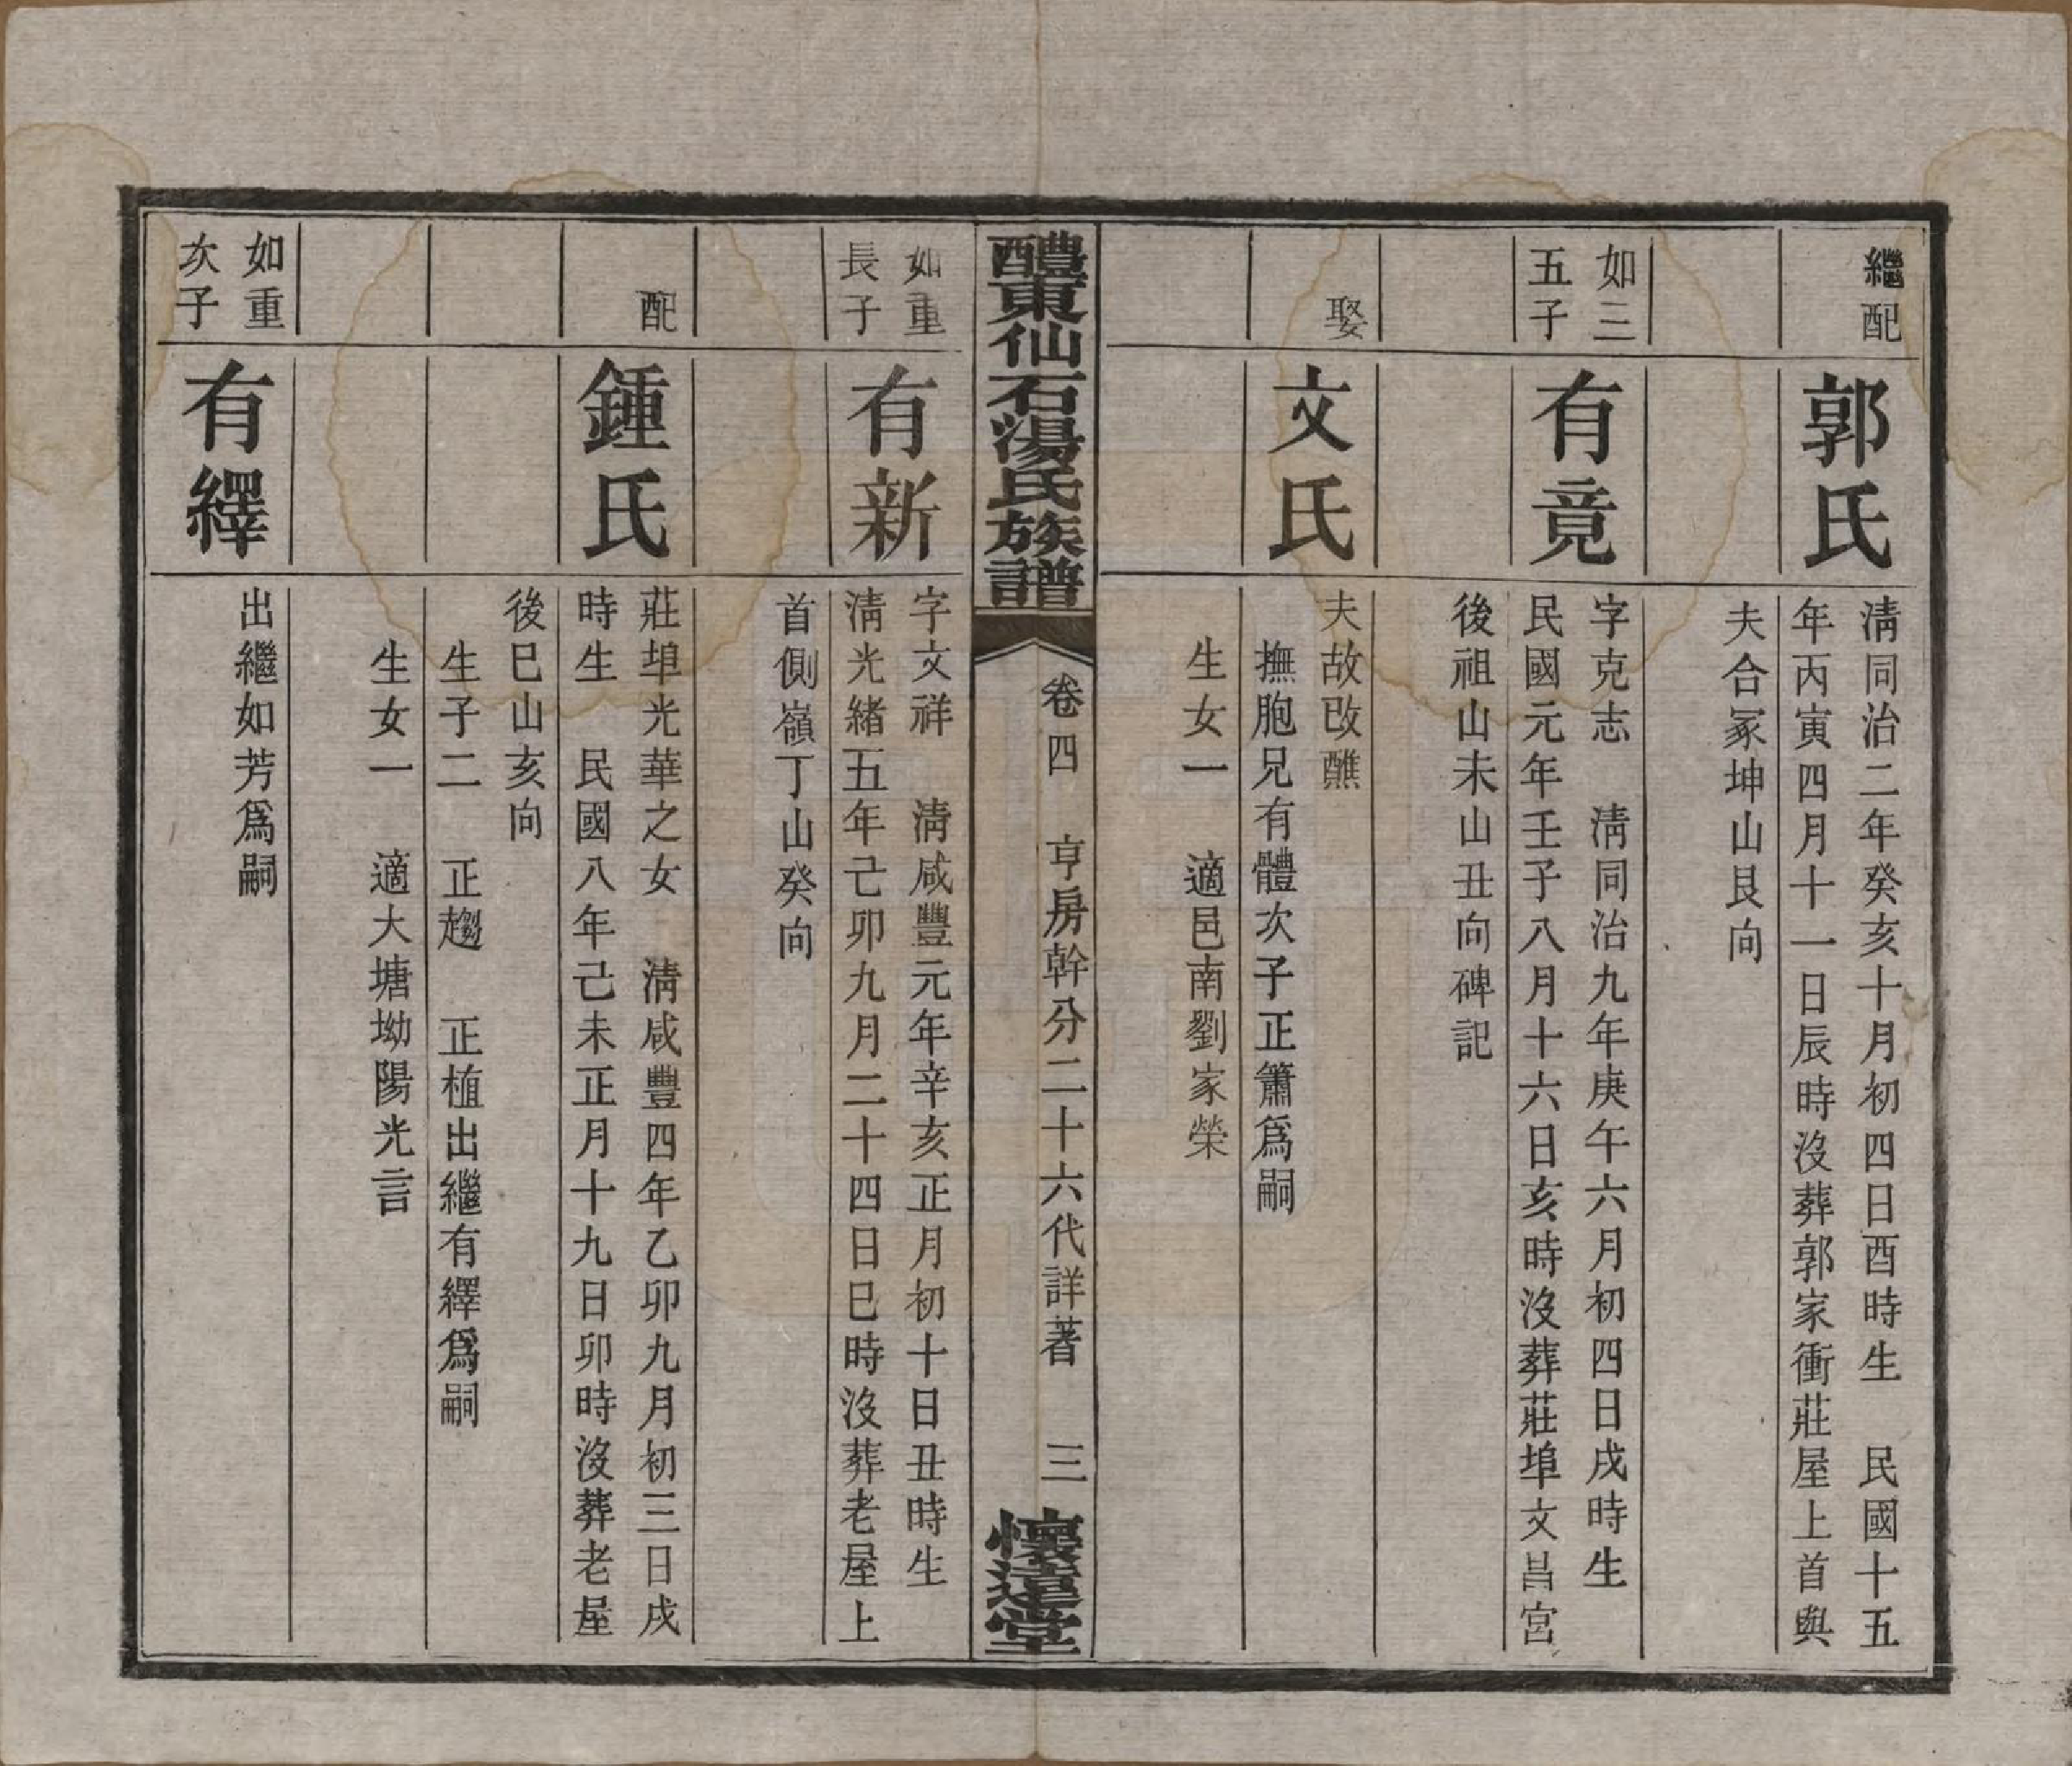 繼配
郭氏
淸同治二年癸亥十月初四日酉時生　民國十五
年丙寅四月十一日辰時沒葬郭家衝莊屋上首與
夫合冢坤山艮向
如三
五子
有竟
字克志　淸同治九年庚午六月初四日戌時生
民國元年壬子八月十六日亥時沒葬莊埠文昌宮
後祖山未山丑向碑記
娶
文氏
夫故改醮
撫胞兄有體次子正簫爲嗣
生女一　適邑南劉家榮
醴東仙石湯氏族譜
卷四　亨房幹分二十六代詳著　三
懷遠堂
如重
長子
有新
字文祥　淸咸豐元年辛亥正月初十日丑時生
淸光緒五年己卯九月二十四日巳時沒葬老屋上
首側嶺丁山癸向
配
鍾氏
莊埠光華之女　淸咸豐四年乙卯九月初三日戌
時生　民國八年己未正月十九日卯時沒葬老屋
後巳山亥向
生子二　正趨　正植出繼有繹爲嗣
生女一　適大塘坳陽光言
如重
次子
有繹
出繼如芳爲嗣